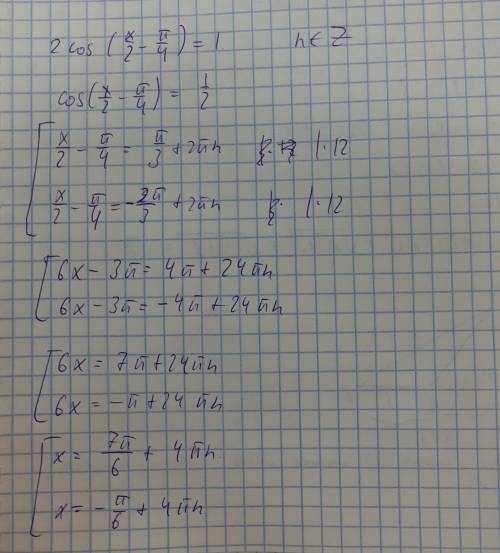 2 cos (x/2 - π/4) = 1    n ∈ Z
cos(x/2 - π/4) = 1/2
[ x/2 - π/4 = π/3 + 2πn    | · 12
x/2 - π/4 = -π/3 + 2πn    | · 12
[ 6x - 3π = 4π + 24πn
6x - 3π = -4π + 24πn
[ 6x = 7π + 24πn
6x = -π + 24πn
[ x = 7π/6 + 4πn
x = -π/6 + 4πn